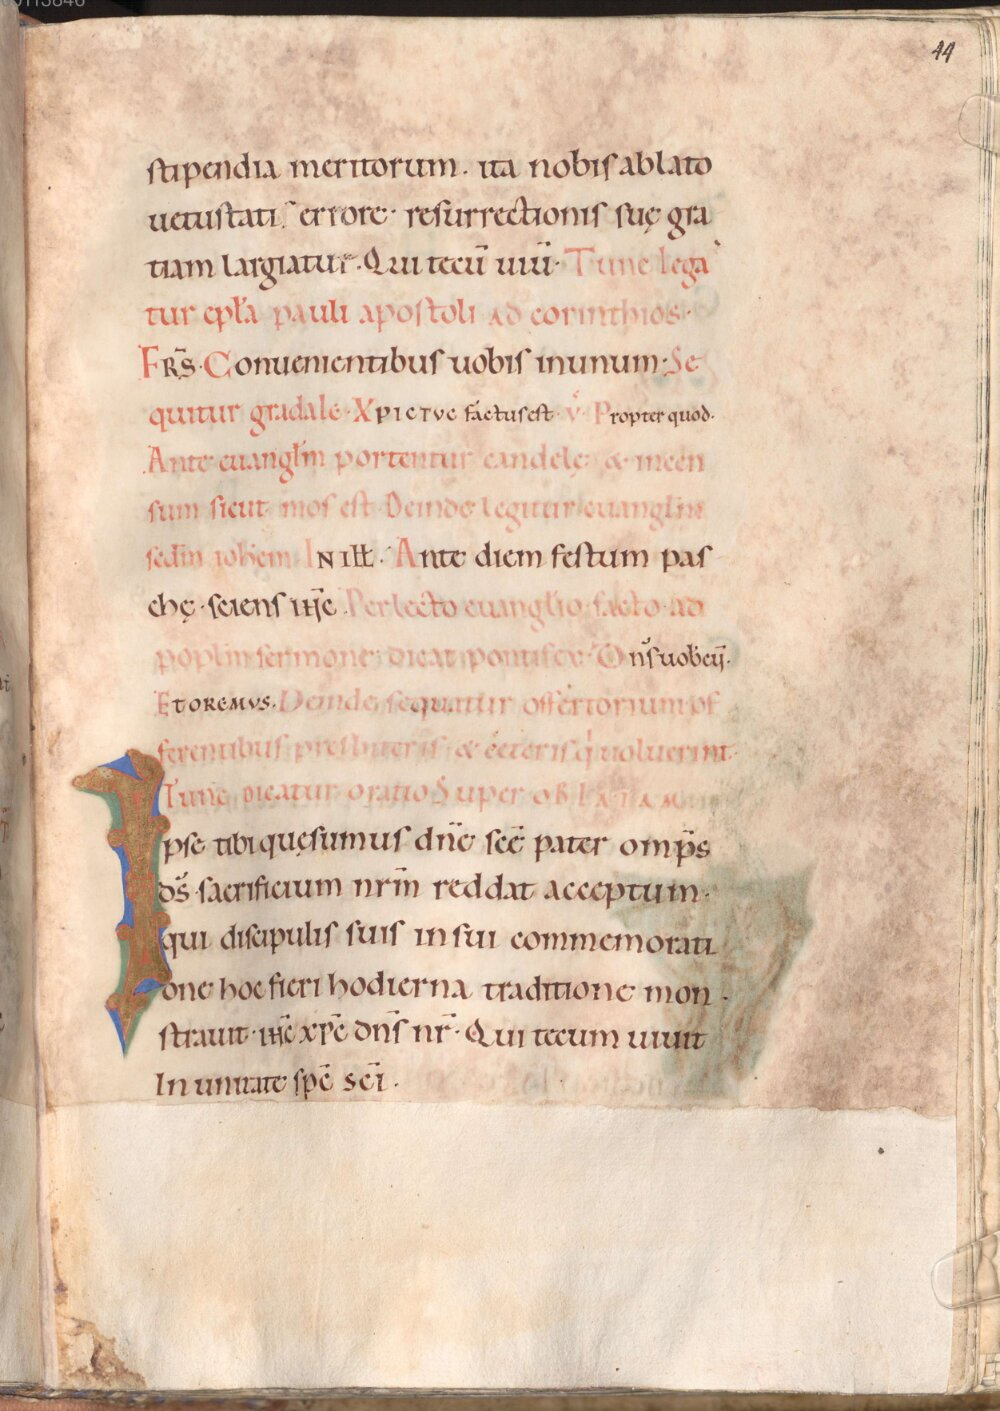 44
stipendia meritorum. ita nobis ablato
uetustatis errore. resurrectionis suę gra
tiam largiatur. Qui tecū uiu̅. Tunc lega
tur epl̅a pauli apostoli ad corinthios.
FRS̅. Conuenientibus uobis inunum. Se
quitur gradale. XPICTVC factus est. v̅. Propter quod.
Ante euangl̅m portentur candelę & incen
sum sicut mos est. Deinde legitur euangl̅m
sedm̅ ioh̅em. IN ILL̅. Ante diem festum pas
chę. sciens ih̅c. Perlecto euangl̅io. facto ad
popl̅m sermone. dicat pontifex. Dn̅s uob̅cu̅.
ET OREMVS. Deinde sequatur offertorium of
ferentibus presbiteris & ceteris q̇ uoluerint.
Tunc dicatur oratio Super OBLATAM
Ipse tibi quęsumus dn̅e sc̅e pater omp̅s
ds̅. sacrificium nr̅m reddat acceptum.
qui discipulis suis in sui commemorati
one hoc fieri hodierna traditione mon
strauit. ih̅c xp̅c dn̅s nr̅. Qui tecum uiuit
In unitate sp̅c sc̅i.